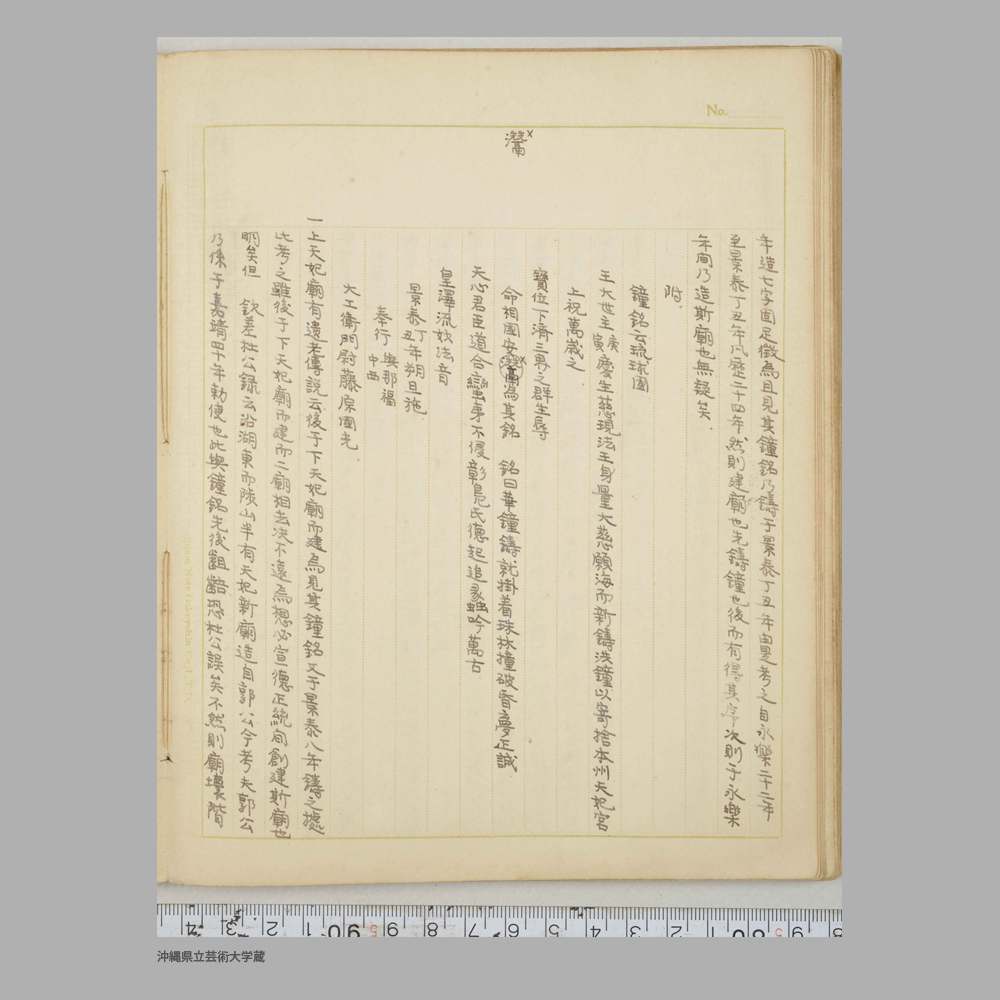 No.
年造七字固足徵焉且見其鐘銘乃鑄于景泰丁丑年由是考之自永樂二十二年
至景泰丁丑年凡歷三十四年然則建廟也先鑄鐘也後而有得其序次則于永樂
年間乃造斯廟也無疑矣.
附.
鐘銘云琉球國
王大世主庚寅慶生慈現法王身量大慈願海而新鑄洪鐘以寄捨本州天妃宮
上祝萬歲之.
寶位下濟三界之群生辱
命相國安為其銘 銘曰華鐘鑄就掛着珠林撞破昏夢正誠
天心君臣道合蠻夷不侵彰鳧氏德起追蠡吟萬古
皇澤流妙法音
景泰丁丑年朔旦施
奉行 與那福 中西
大工衛門尉藤原國光.
一上天妃廟有遺老傳說云後于下天妃廟而建焉見其鐘銘又于景泰八年鑄之據
此考之雖後于下天妃廟而建而二廟相去決不遠焉想必宣德正統間創建斯廟也
明矣但 欽差杜公錄云沿湖東而陟山半有天妃新廟造自郭公今考夫郭公
乃係于嘉靖四十年勅使也此與鐘銘先後齟齬恐杜公誤矣不然則廟壞階
沖縄県立芸術大学蔵